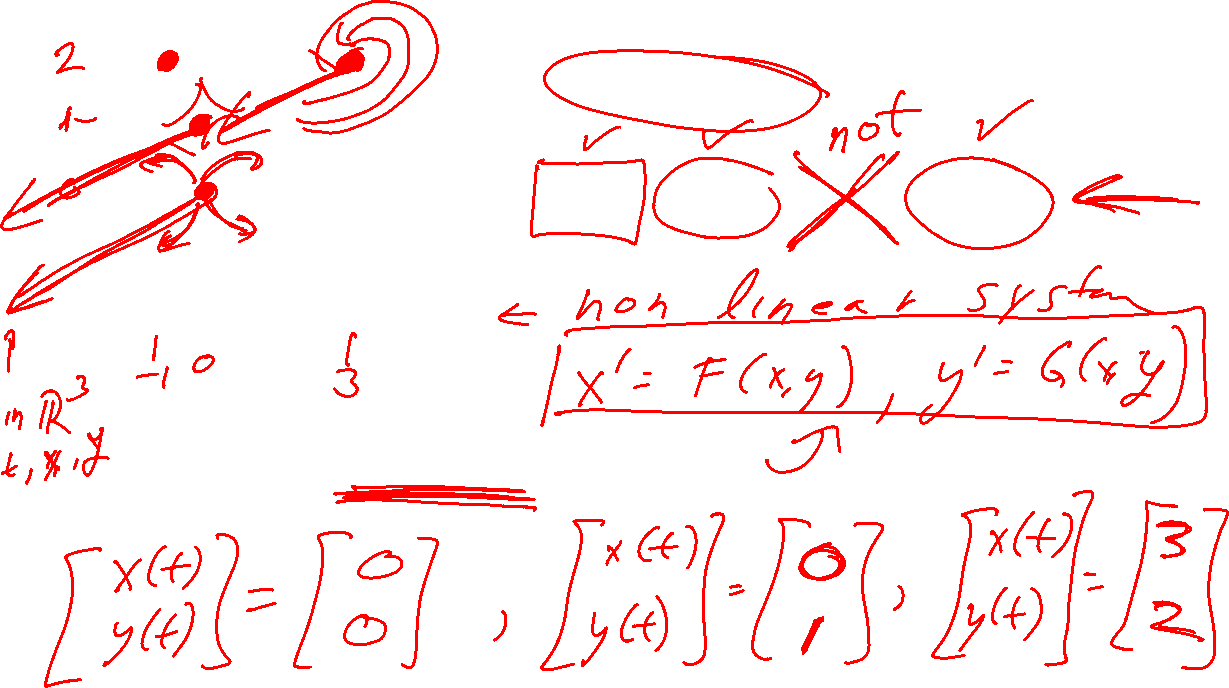 2
1
not
non linear system
x' = F(x,y), y' = G(x,y)
-1 0 3
in ℝ³
t, x, y
[x(t) y(t)] = [0 0], [x(t) y(t)] = [0 1], [x(t) y(t)] = [3 2]